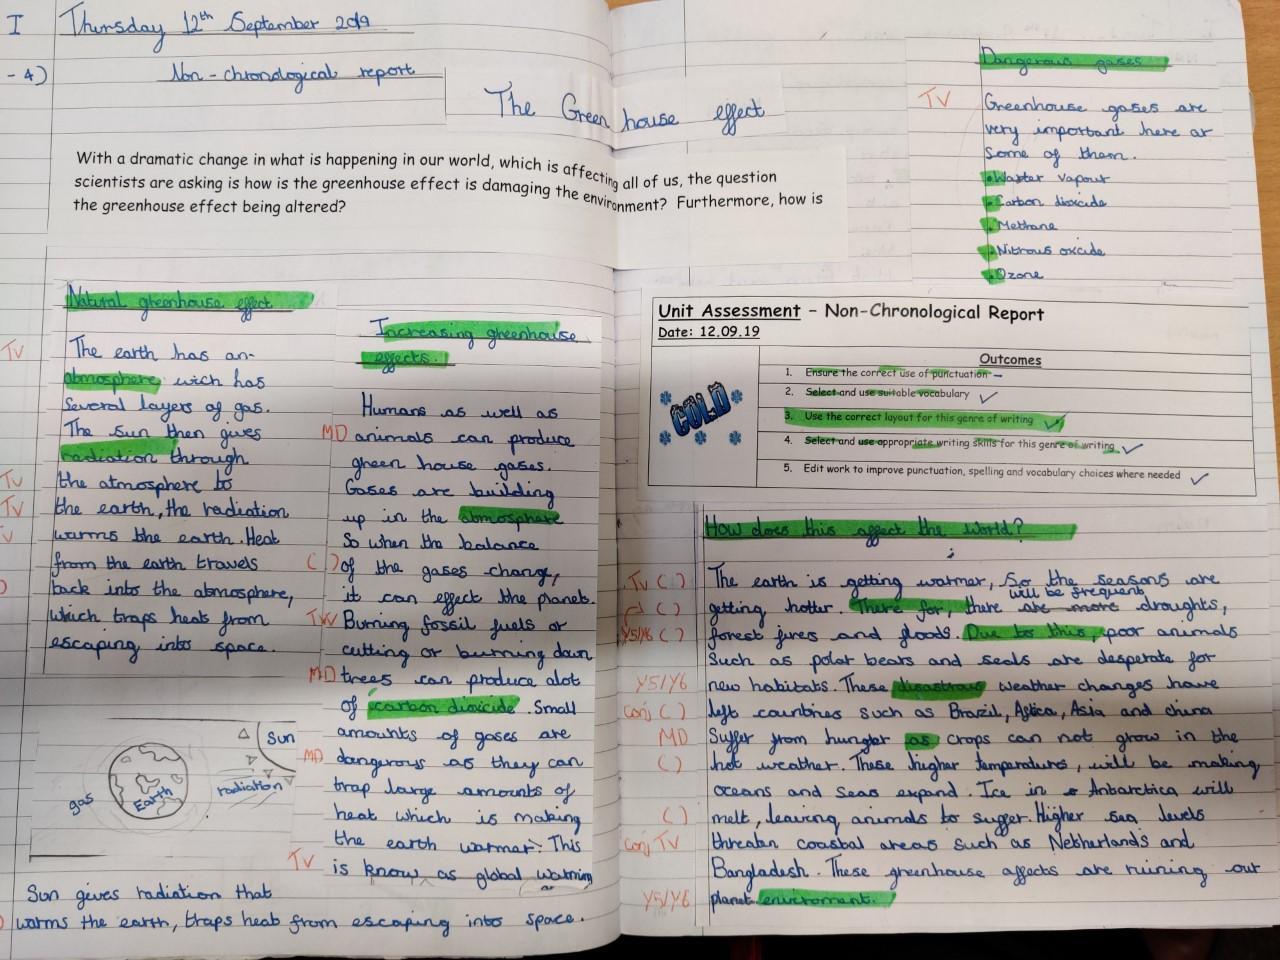 I
Thursday 12th September 2019
- 4)
Non-chronological report
The Green house effect
With a dramatic change in what is happening in our world, which is affecting all of us, the question
scientists are asking is how is the greenhouse effect is damaging the environment? Furthermore, how is
the greenhouse effect being altered?
Natural greenhouse effect
TV
The earth has an-
atmosphere wich has
several layers of gas.
The sun then gives
radiation through
TV
the atmosphere to
TV
the earth, the radiation
warms the earth. Heat
from the earth travels
back into the atmosphere,
which traps heat from
escaping into space.
Sun
gas
Earth
radiation
Sun gives radiation that
warms the earth, traps heat from escaping into space.
Increasing greenhouse
effects.
Humans as well as
MD animals can produce
green house gases.
Gases are building
up in the atmosphere
So when the balance
( ) of the gases change,
it can effect the planet.
TV Burning fossil fuels or
cutting or burning down
MD trees can produce alot
of carbon dioxcide. Small
amounts of gases are
MD dangerous as they can
trap large amounts of
heat which is making
the earth warmer. This
TV is know as global warming
Dangerous gases
TV
Greenhouse gases are
very important here ar
some of them.
•Warter vapour
•Carbon dioxcide
•Methane
•Nitrous oxcide
•Ozone
Unit Assessment - Non-Chronological Report
Date: 12.09.19
COLD
Outcomes
1. Ensure the correct use of punctuation
2. Select and use suitable vocabulary
3. Use the correct layout for this genre of writing
4. Select and use appropriate writing skills for this genre of writing
5. Edit work to improve punctuation, spelling and vocabulary choices where needed
How does this affect the world?
TV ( ) The earth is getting warmer, so the seasons are
will be frequent
( ) getting hotter. There for, there are more droughts,
Y5/Y6 ( ) forest fires and floods. Due to this, poor animals
such as polar bears and seals are desperate for
Y5/Y6 new habitats. These disastrous weather changes have
conj ( ) left countries such as Brazil, Africa, Asia and china
MD suffer from hunger as crops can not grow in the
( ) hot weather. These higher temperatures, will be making
oceans and seas expand. Ice in Antarctica will
( ) melt, leaving animals to suffer. Higher sea levels
conj TV threaten coastal areas such as Netherlands and
Bangladesh. These greenhouse affects are ruining our
Y5/Y6 planet enviroment.